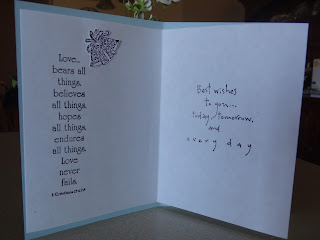 Love...
bears all
things,
believes
all things,
hopes
all things,
endures
all things.
Love
never
fails.
Best wishes
to you...
today, tomorrow,
and
every day